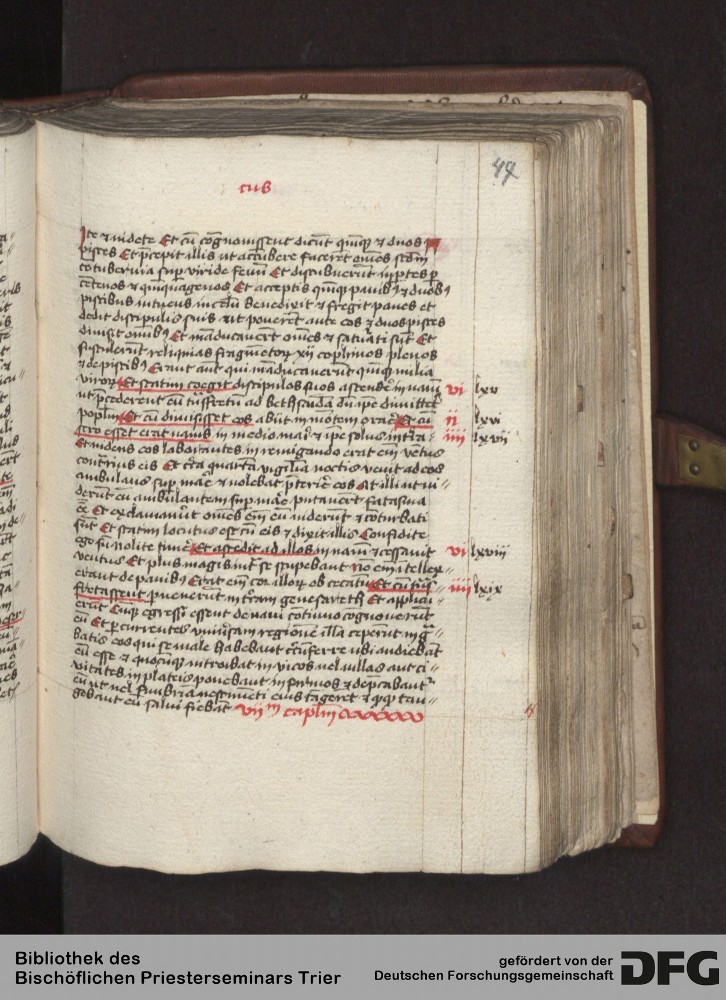 44
cus
Ite et videte Et cū cognovissent dicūt quinqꝫ et duos
pisces Et p̄cepit illis ut accūbere facerēt om̄es scd̄m
cōtubernia sup viride fenū Et discubuerūt in ptes p
cētenos et quinquagenos Et acceptis quinqꝫ panibꝫ et duobꝫ
piscibus intuens in celū benedixit et fregit panes et
dedit discipulis suis ut ponerēt ante eos et duos pisces
divisit om̄ibꝫ Et māducaverūt om̄es et saturati sūt Et
sustulerūt reliquias fragmētoꝝ xij cophinos plenos
et de piscibꝫ Erant aūt qui māducaverūt quinqꝫ milia
viroꝝ Et statim coegit discipulos suos ascendēe in navim vi lxv
ut p̄cederent eū tⁿs fretū ad bethsaidā dū ip̄e dimittēt
populū Et cū dimisisset eos abiit in mōtem orare Et cū ii lxvi
sero esset erat navis in medio maris et ipe solus in tr̄a iiii lxvii
Et videns eos laborantes in remigando erat em̄ vētus
contrarius eis Et circa quartā vigiliā noctis venit ad eos
ambulans sup mare et volebat p̄terire eos At illi ut vi
derūt eū ambulantem sup mare putaverūt fantasma
ēe Et exclamaverūt om̄es em̄ eū viderunt et cōturbati
sūt Et statim locutus est cū eis et dixit illis Confidite
ego sū nolite timēe Et ascendit ad illos in navī et cessavit vi lxviii
ventus Et plus magis intra se stupebant nō em̄ intellex
erant de panibꝫ Erat em̄ cor illoꝝ obcecatū Et cū trās iiii lxix
fretassent pvenerūt in terram genesareth Et applicu
erūt Cumqꝫ egressi essent de navi cōtinuo cognoverūt
eū Et p̄currentes universam regionē illā ceperūt in gra
batis eos qui se male habebant circūferre ubi audiebāt
eū esse et quocūqꝫ introibat in vicos vel villas aut ci
vitates in plateis ponebant infirmos et depcabant
eū ut vel fimbriā vestimēti eius tāgerēt et quotquot tan
gebant eū salvi fiebāt vii m capl̄m
Bibliothek des
Bischöflichen Priesterseminars Trier
gefördert von der
Deutschen Forschungsgemeinschaft
DFG